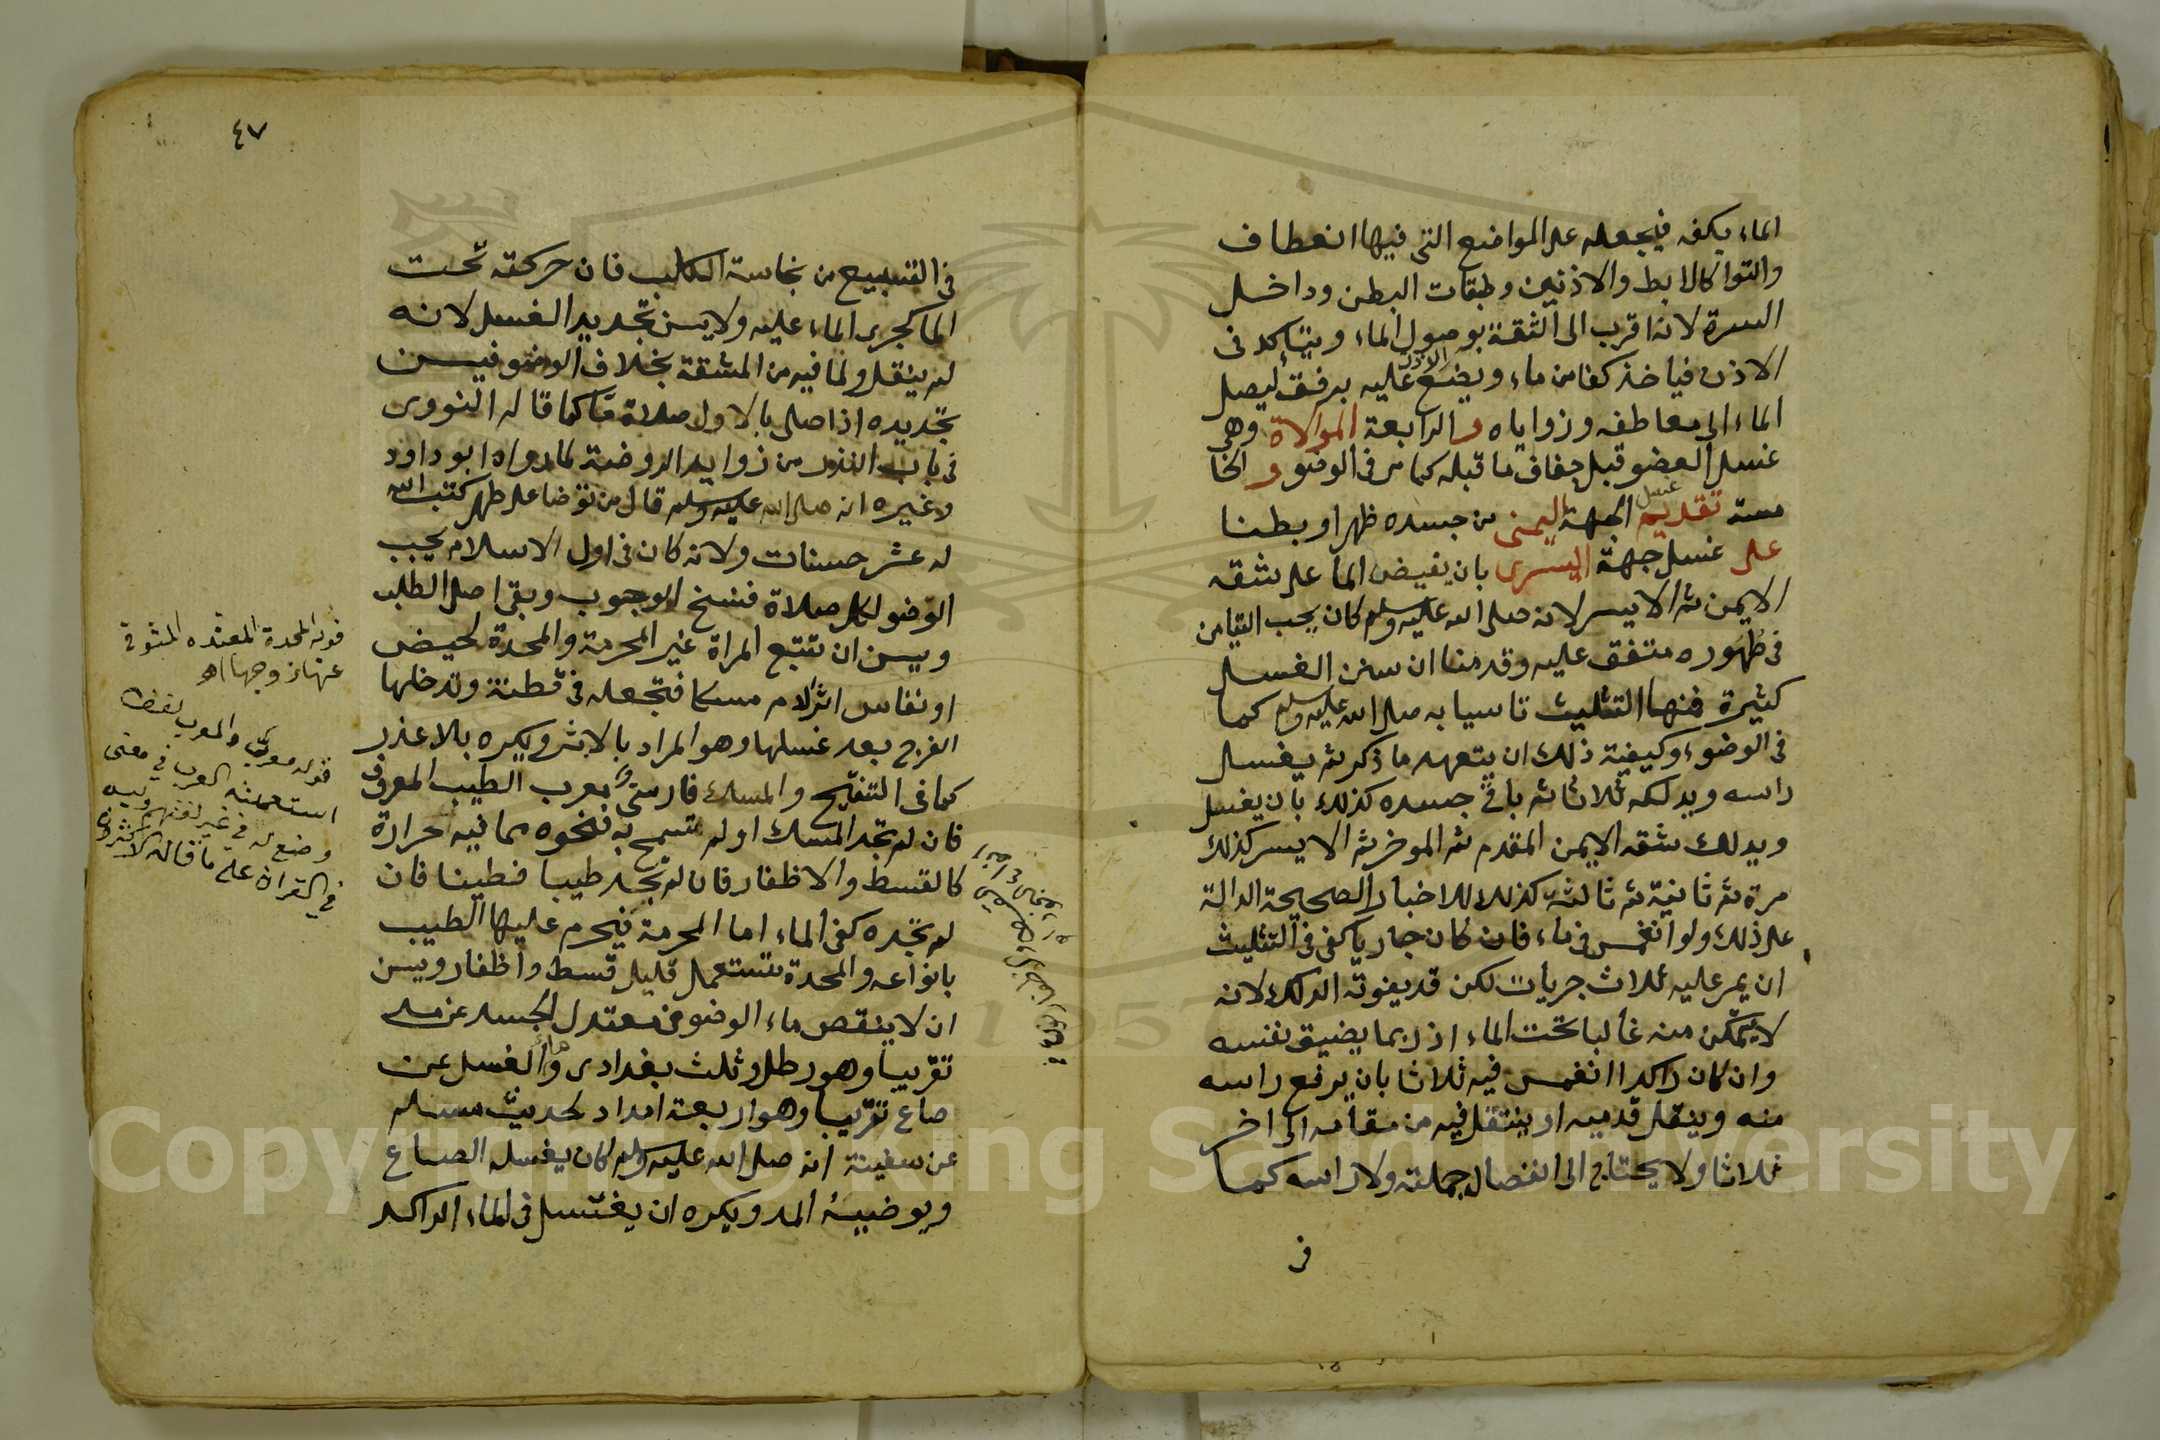 الماء بكفه فيجعله على المواضع التى فيها انعطاف
والتوا كالابط والاذنين وطبقات البطن وداخل
السرة لانه اقرب الى الثقة بوصول الماء ويتاكد فى
الاذن فياخذ كفا من ماء ويضع الاذن عليه برفق ليصل
الماء الى معاطفه وزواياه والرابعة الموالاة وهى
غسل العضو قبل جفاف ما قبله كما مر فى الوضو والخا
مسة تقديم غسل الجهة اليمنى من جسده ظهرا وبطنا
على غسل جهة اليسرى بان يفيض الما على شقه
الايمن ثم الايسر لانه صلى الله عليه وسلم كان يحب التيامن
فى طهوره متفق عليه وقدمنا ان سنن الغسل
كثيرة فمنها التثليث تاسيا به صلى الله عليه وسلم كما
فى الوضوء وكيفية ذلك ان يتعهد ما ذكر ثم يغسل
راسه ويدلكه ثلاثا ثم باقى جسده كذلك بان يغسل
ويدلك شقه الايمن المقدم ثم الموخر ثم الايسر كذلك
مرة ثم ثانية ثم ثالثة كذلك للاخبار الصحيحة الدالة
على ذلك ولو انغمس فى ماء فان كان جاريا كفى فى التثليث
ان يمر عليه ثلاث جريات لكن قد يفوته الدلك لانه
لا يتمكن منه غالبا تحت الماء اذ ربما يضيق نفسه
وان كان راكدا انغمس فيه ثلاثا بان يرفع راسه
منه وينقل قدميه او ينتقل فيه من مقامه الى اخر
ثلاثا ولا يحتاج الى انفصال جملته ولا راسه كما
فى
٤٧
فى التسبيع من نجاسة الكلب فان حركته تحت
الما كجرى الماء عليه ولا يسن تجديد الغسل لانه
لم ينقل ولما فيه من المشقة بخلاف الوضو فيسن
تجديده اذا صلى بالاول صلاة مّا كما قاله النووى
فى باب النذر من زوايد الروضة لما رواه ابو داود
وغيره انه صلى الله عليه وسلم قال من توضا على طهر كتب الله
له عشر حسنات ولانه كان فى اول الاسلام يجب
الوضو لكل صلاة فنسخ الوجوب وبقى اصل الطلب
ويسن ان تتبع المراة غير المحرمة والمحدة لحيض
او نفاس اثر الدم مسكا فتجعله فى قطنة وتدخلها
الفرج بعد غسلها وهو المراد بالاثر ويكره بلا عذر
كما فى التنقيح والمسك فارسى معرب الطيب المعروف
فان لم تجد المسك او لم تسمح به فنحوه مما فيه حرارة
كالقسط والاظفار فان لم تجد طيبا فطينا فان
لم تجده كفى الماء اما المحرمة فيحرم عليها الطيب
بانواعه والمحدة تستعمل قليل قسط واظفار ويسن
ان لا ينقص ماء الوضو فى معتدل الجسد عن مد
تقريبا وهو رطل وثلث بغدادى وماء الغسل عن
صاع تقريبا وهو اربعة امداد لحديث مسلم
عن سفينة انه صلى الله عليه وسلم كان يغسله الصاع
ويوضيه المد ويكره ان يغتسل فى الماء الراكد
قوله المحدة المعتده المتوفى
عنها زوجها اه
قوله معرب والمعرب لفظ
استعملته العرب فى معنى
وضع له فى غير لغتهم وليس
فى القران على ما قاله الاكثرون